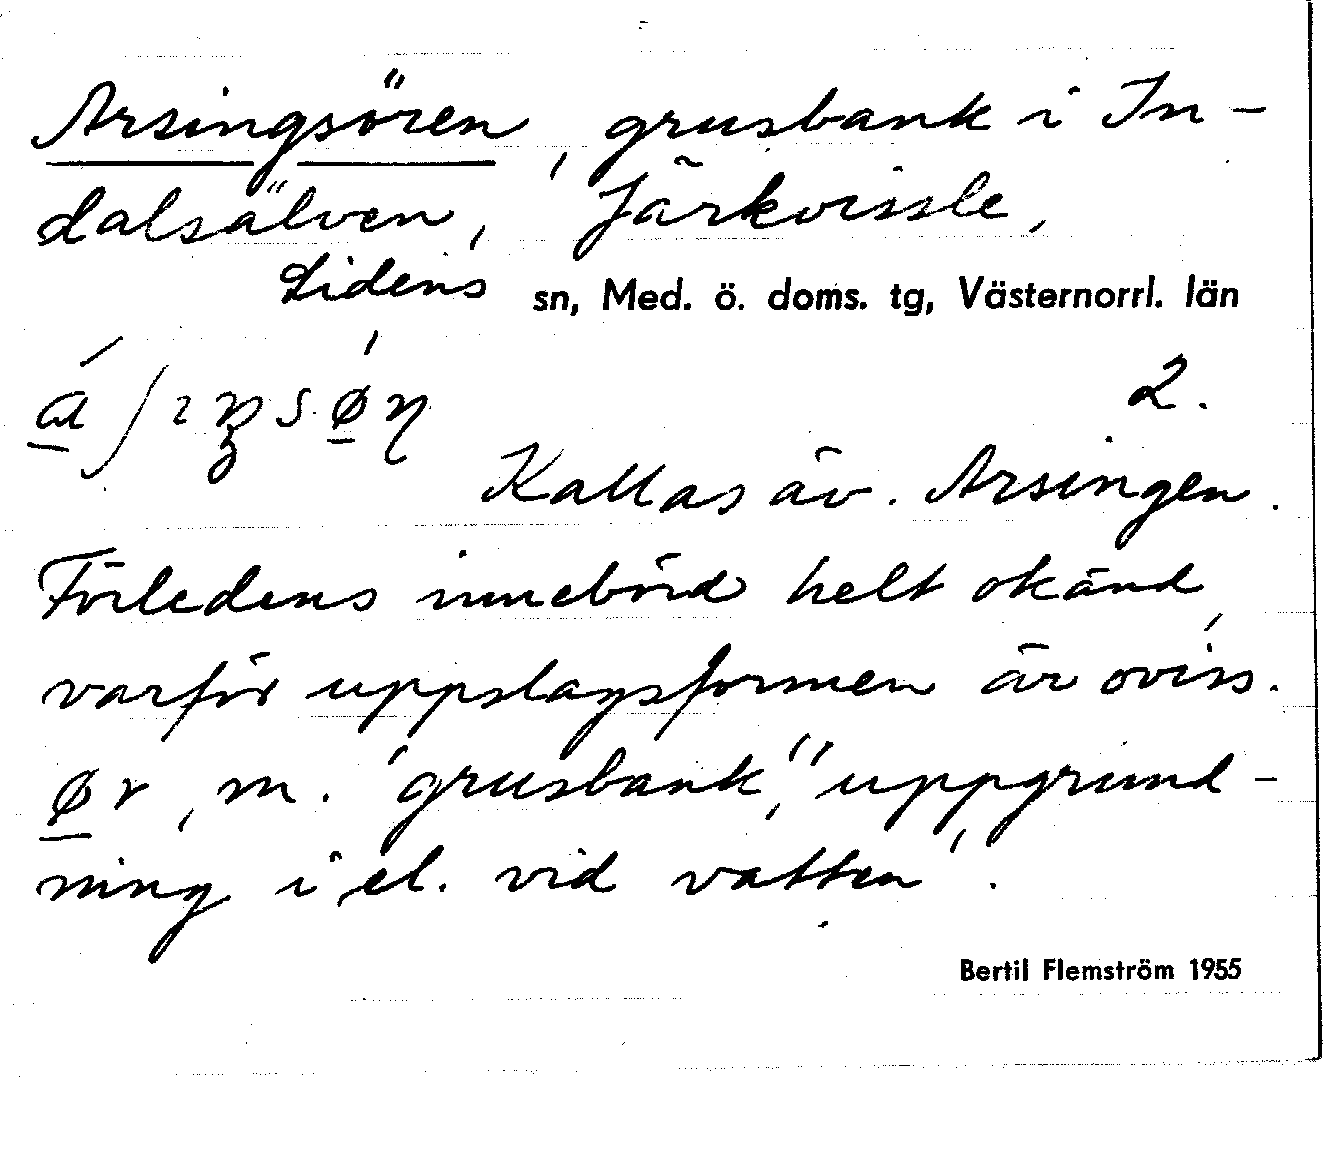 Arsingsören, grusbank i In-
dalsälven, Järkvissle,
Lidens sn, Med. ö. doms. tg, Västernorrl. län
2.
Kallas äv. Arsingen.
Förledens innebörd helt okänd,
varför uppslagsformen är oviss.
ør, m. 'grusbank', 'uppgrund-
ning i el. vid vatten'.
Bertil Flemström 1955